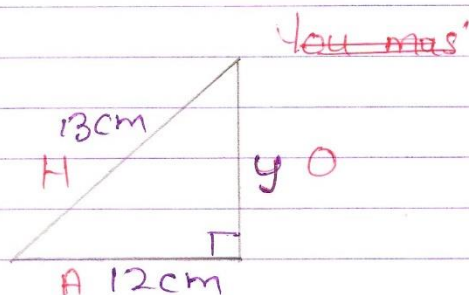 You mus
13cm
H
y O
A 12cm